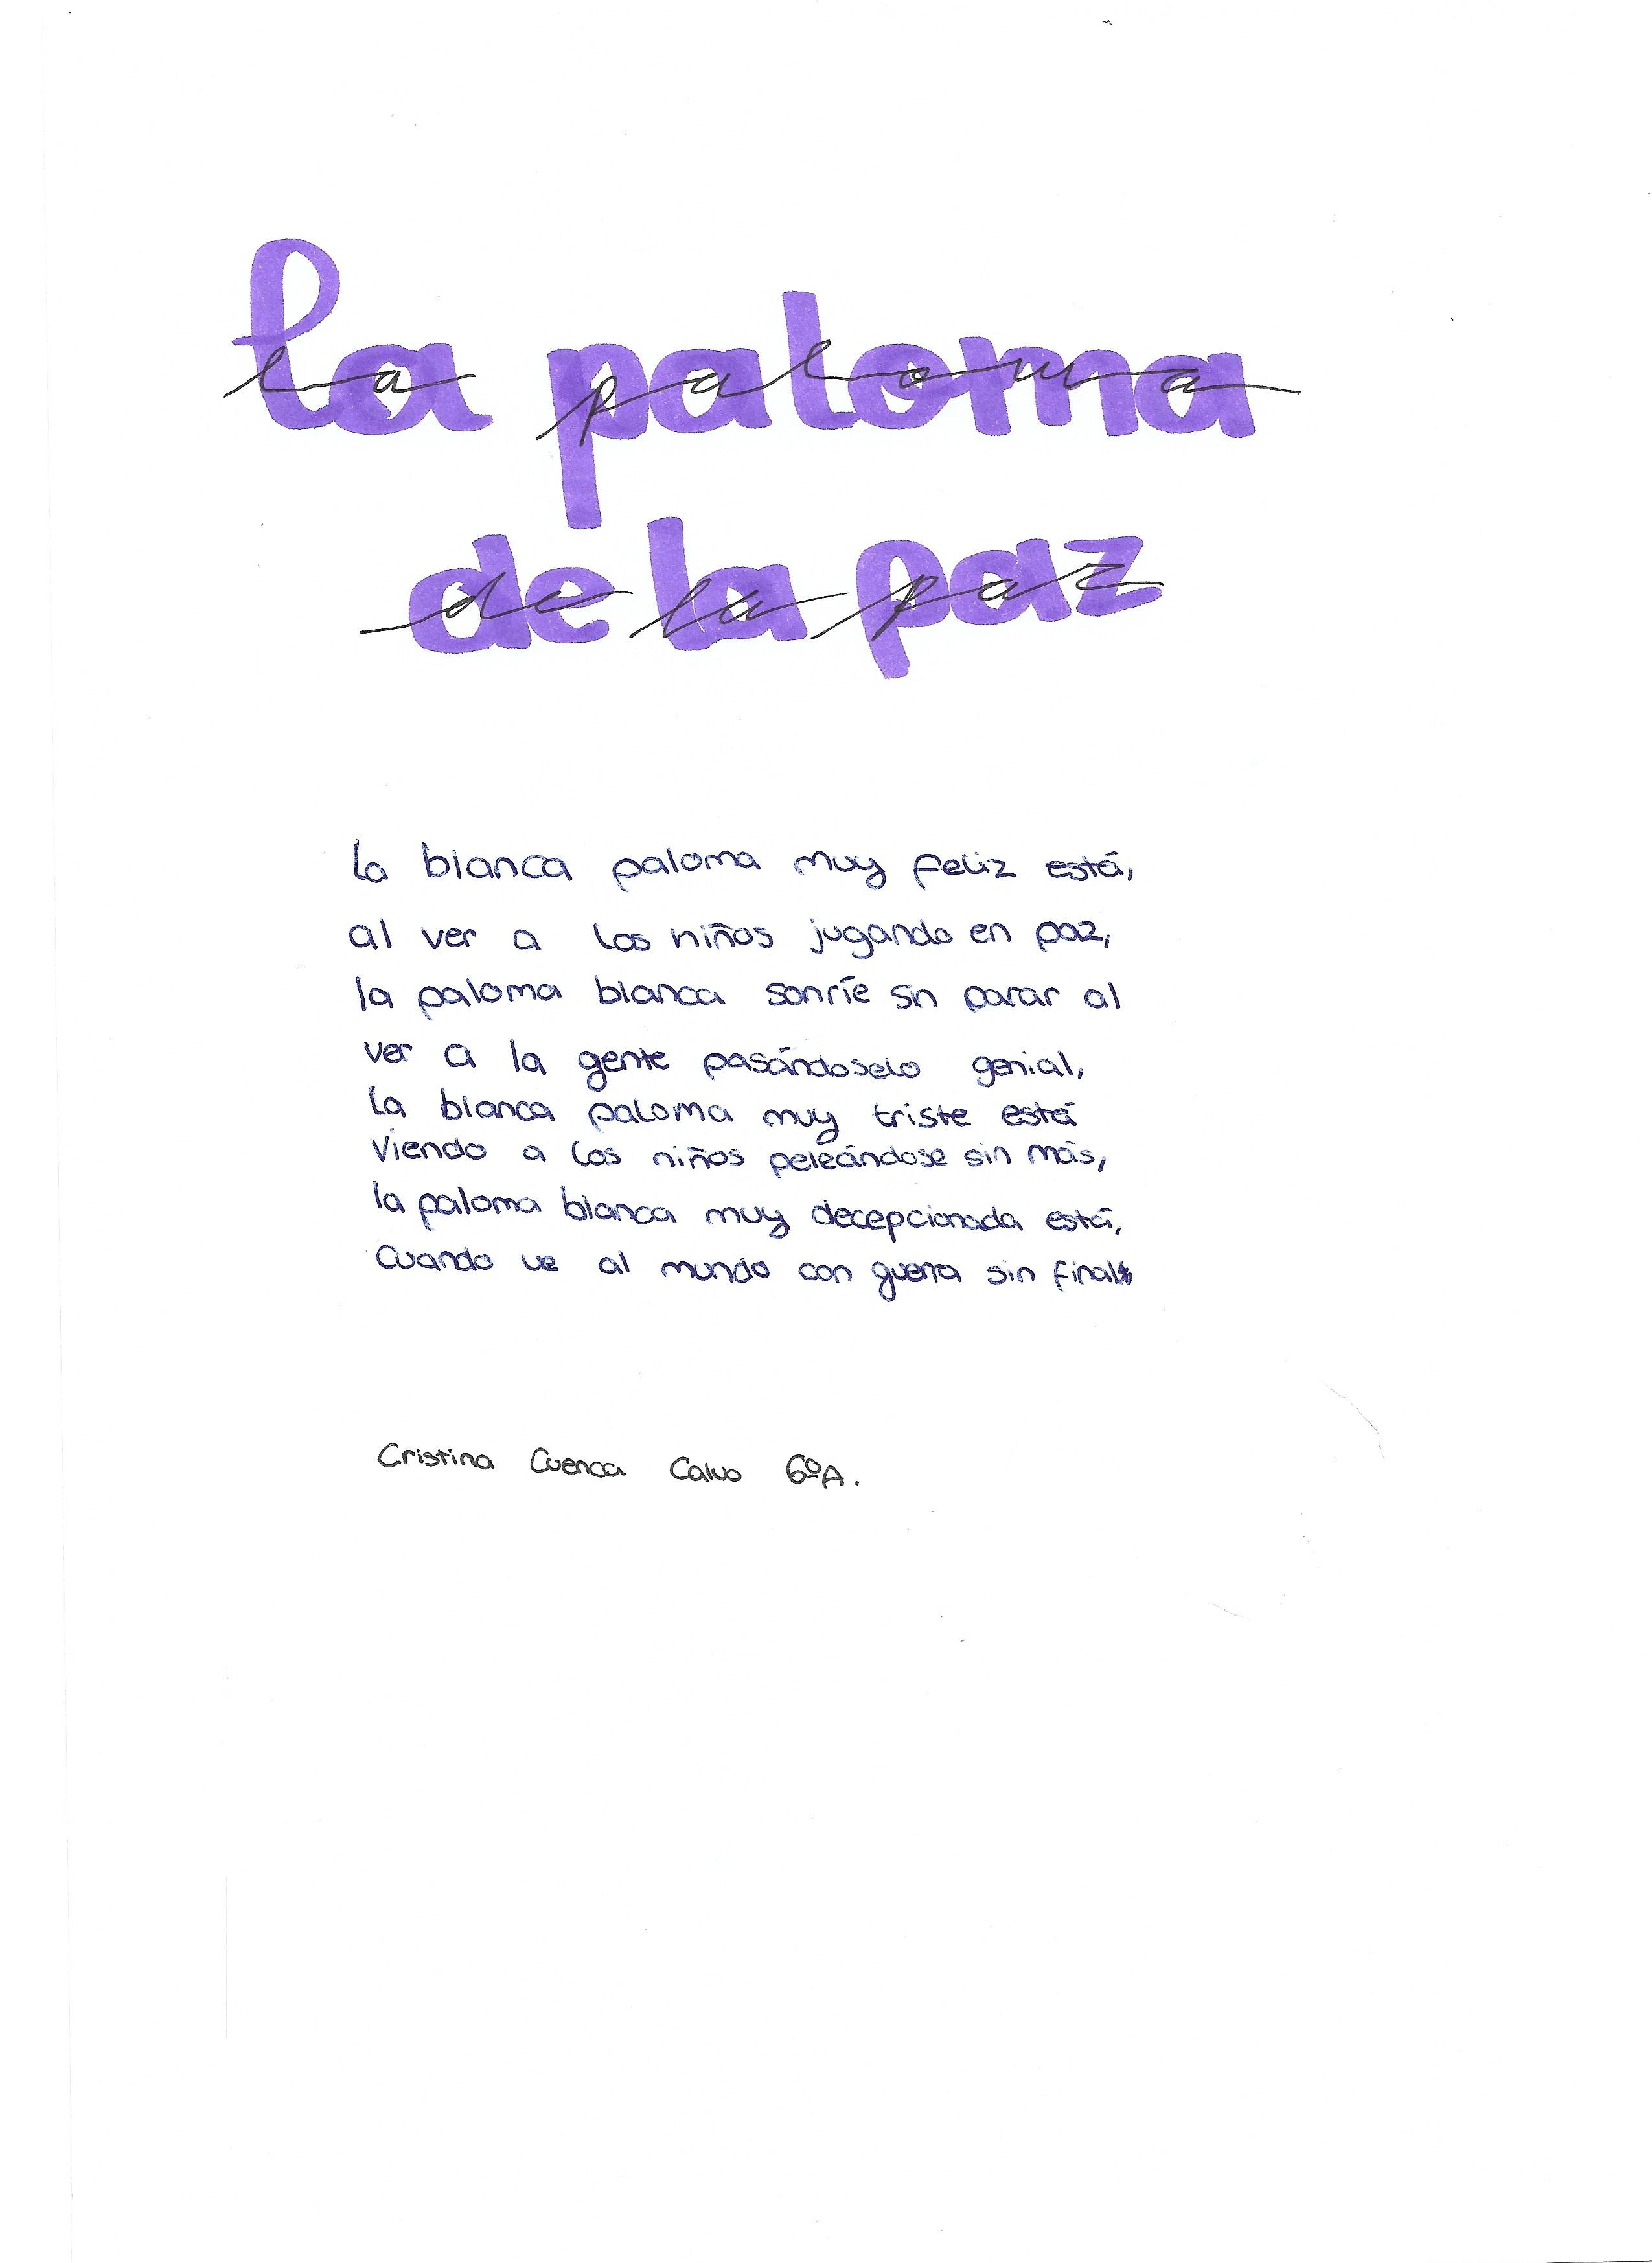 la paloma
de la paz
La blanca paloma muy feliz está,
al ver a los niños jugando en paz,
la paloma blanca sonríe sin parar al
ver a la gente pasándoselo genial,
La blanca paloma muy triste está
viendo a los niños peleándose sin más,
la paloma blanca muy decepcionada está,
cuando ve al mundo con guerra sin final
Cristina Cuenca Calvo 6ºA.